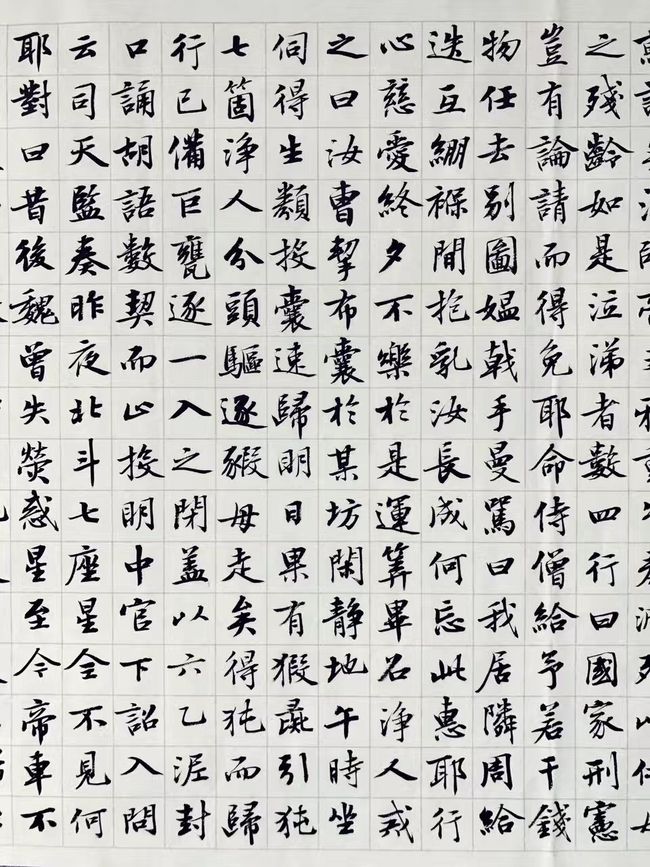 之殘齡如是泣涕者數四行曰國家刑憲
豈有論請而得免耶命侍僧給予若干錢
物任去别圖媼戟手曼罵曰我居隣周給
迭互繃褓間抱乳汝長成何忘此惠耶行
心慈愛終夕不樂於是運筭畢召淨人戒
之曰汝曹挈布囊於某坊閑靜地午時坐
伺得生類投囊速歸明日果有猳彘引㹠
七箇淨人分頭驅逐豭母走矣得㹠而歸
行已備巨甕逐一入之閉盖以六乙泥封
口誦胡語數契而止投明中官下詔入問
云司天監奏昨夜北斗七座星全不見何
耶對曰昔後魏曾失熒惑星至今帝車不